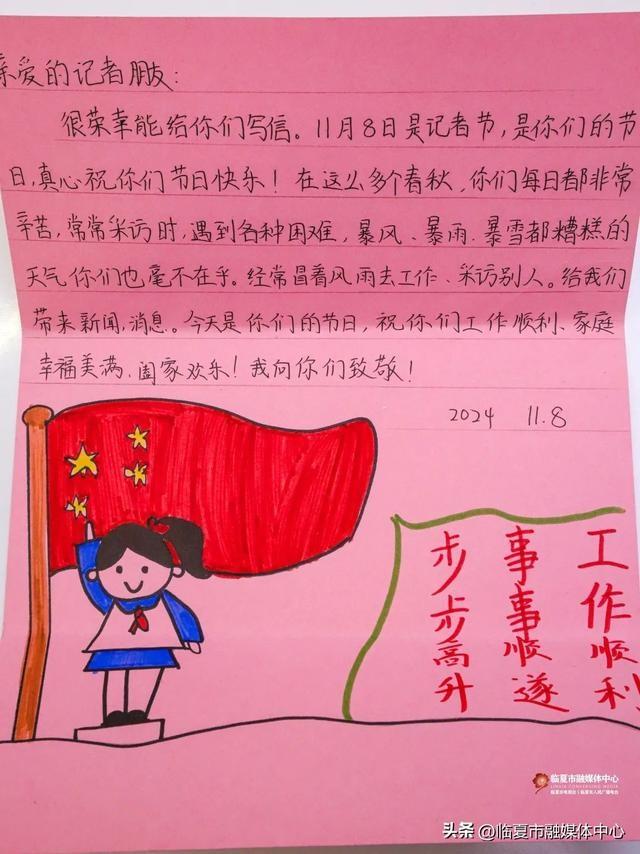 亲爱的记者朋友：
很荣幸能给你们写信。11月8日是记者节，是你们的节
日，真心祝你们节日快乐！在这么多个春秋，你们每日都非常
辛苦，常常采访时，遇到各种困难，暴风、暴雨、暴雪都糟糕的
天气你们也毫不在乎。经常冒着风雨去工作、采访别人。给我们
带来新闻，消息。今天是你们的节日，祝你们工作顺利、家庭
幸福美满、阖家欢乐！我向你们致敬！
2024 11.8
工作顺利
事事顺遂
步步高升
临夏市融媒体中心
LINXIA CONVERGING MEDIA
临夏市电视台|临夏市人民广播电台
头条 @临夏市融媒体中心